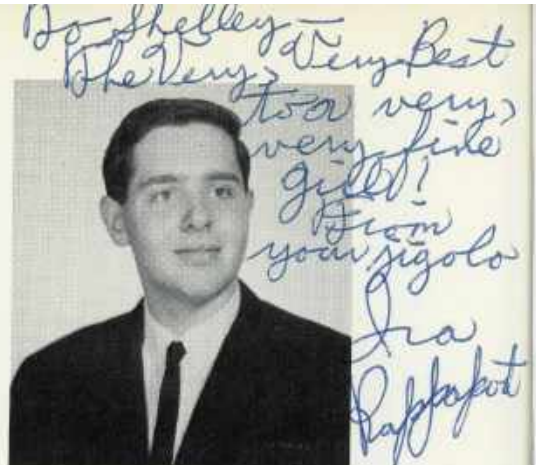 To Shelley —
The Very, Very Best
to a very,
very fine
girl!
From
your jigolo
Ira
Rappaport